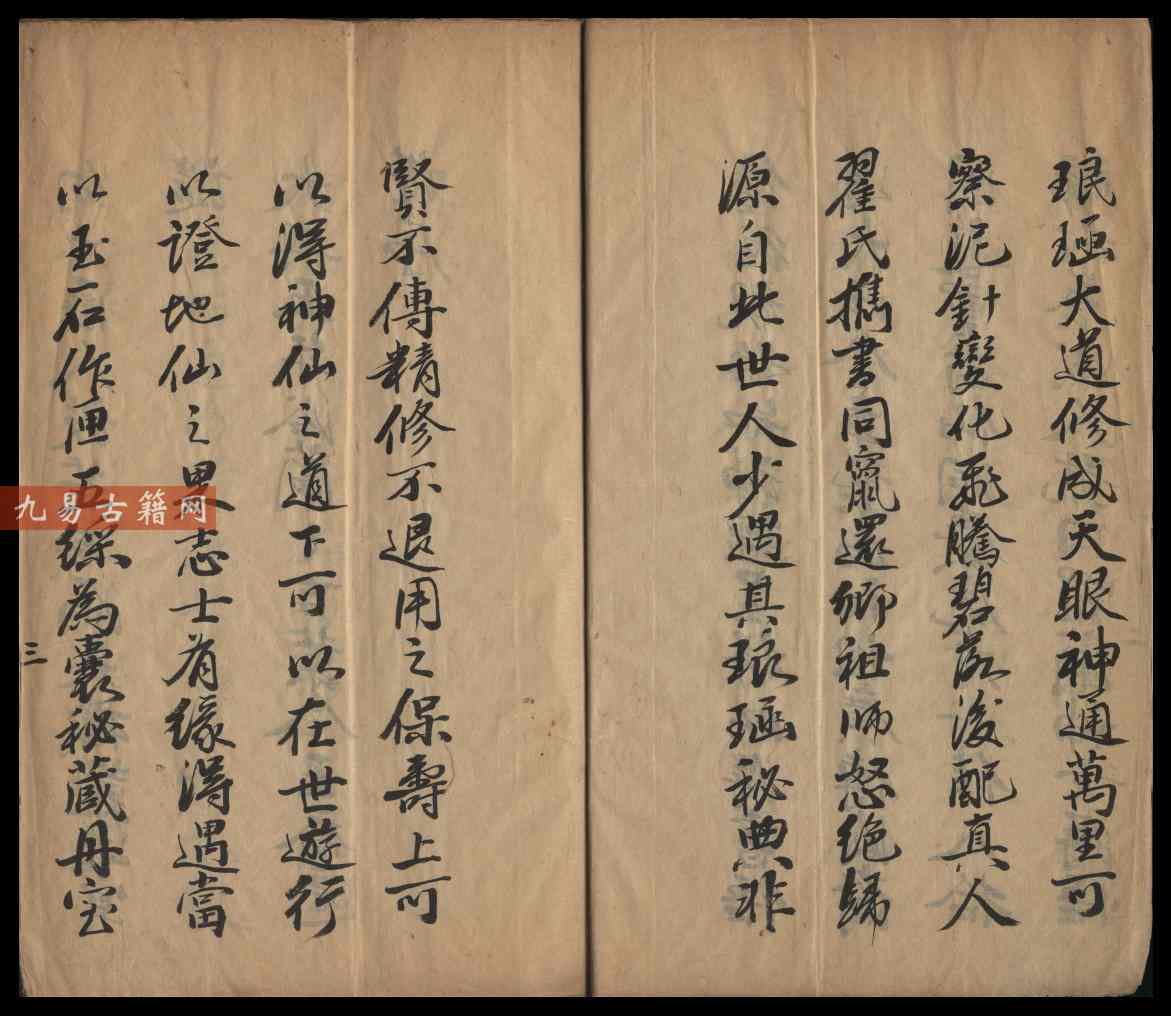 琅珤大道修成天眼神通萬里可
察泥針變化飛騰碧落後配真人
翟氏攜書同竄還鄉祖師怒絕歸
源自此世人少遇其琅函秘典非
賢不傳精修不退用之保壽上可
以得神仙之道下可以在世遊行
以證地仙之果志士有緣得遇當
以玉石作匣五綵為囊秘藏丹室
三
九易古籍网